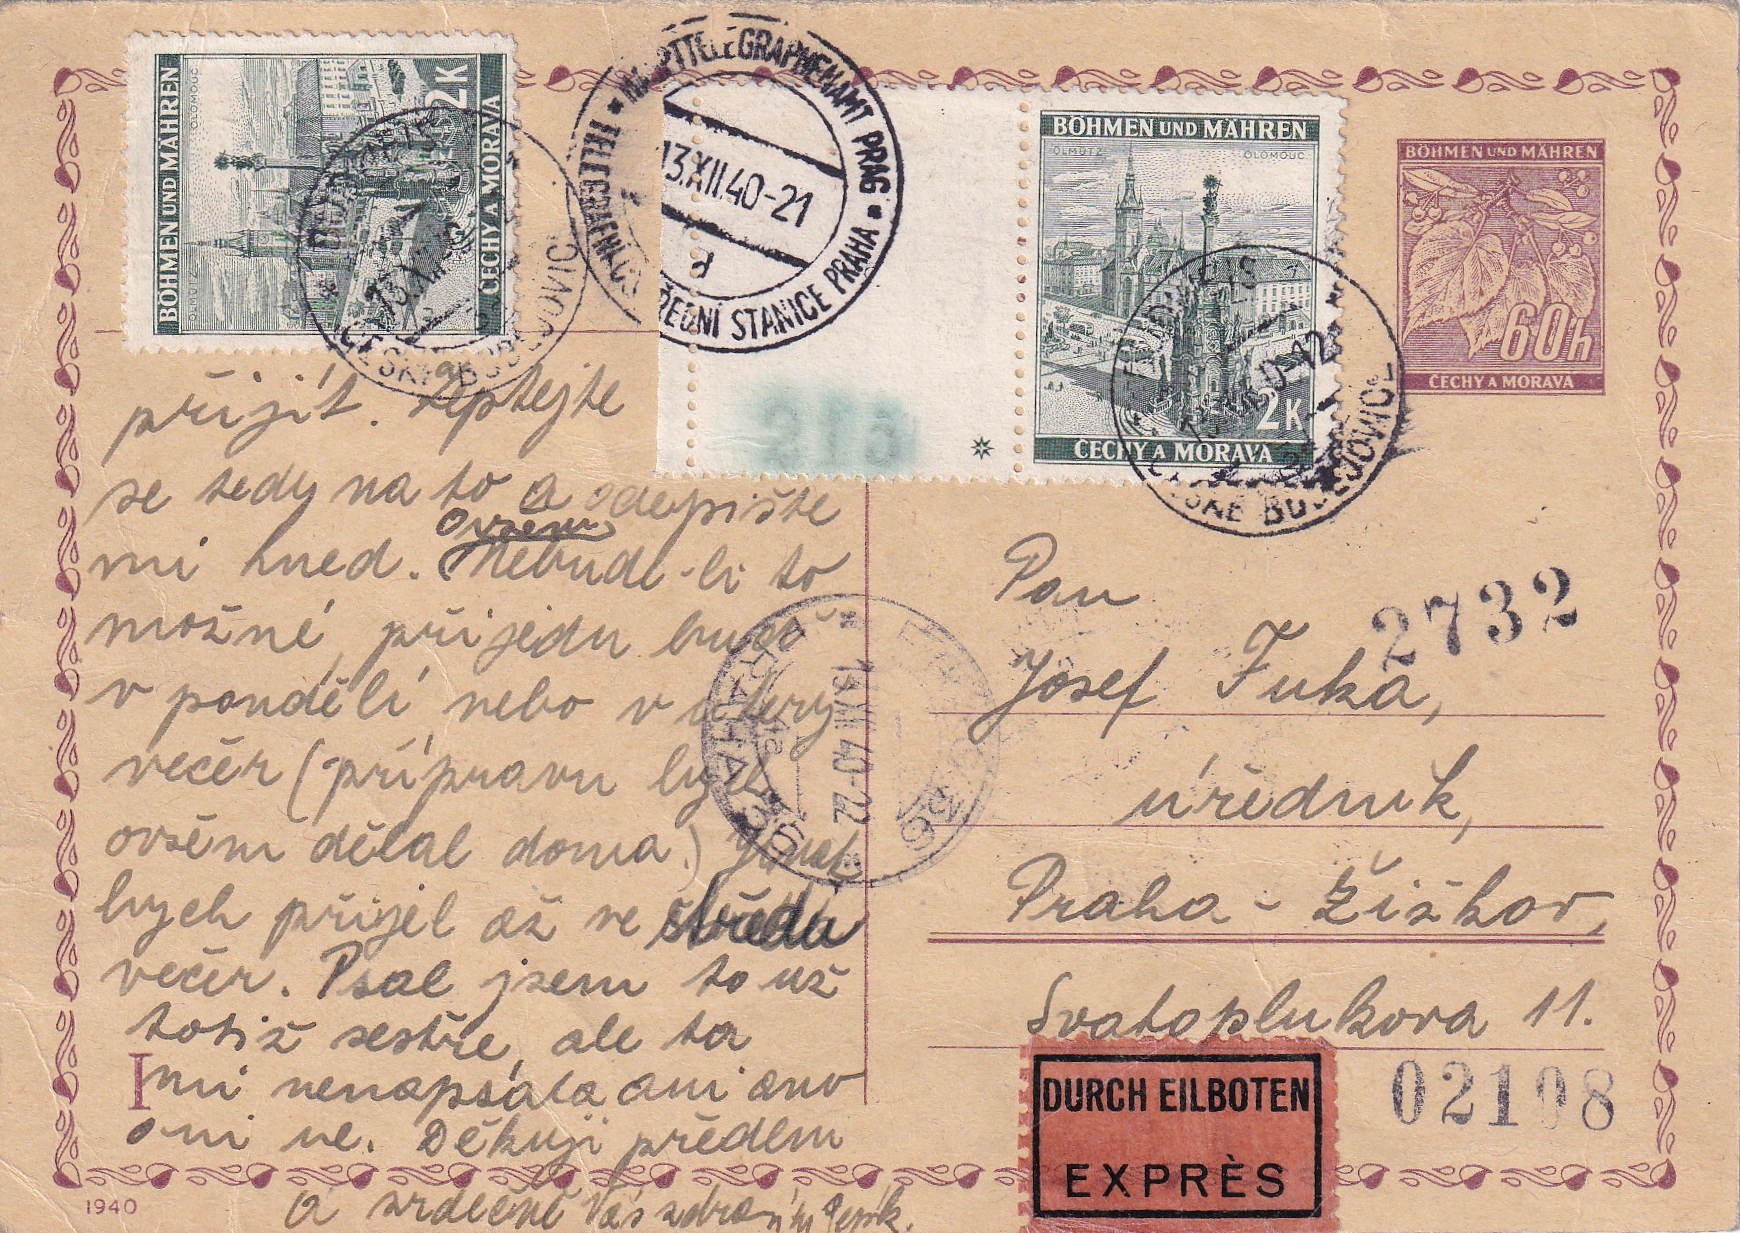 BÖHMEN UND MÄHREN
OLMÜTZ
OLOMOUC
2K
ČECHY A MORAVA
ČESKÉ BUDĚJOVICE
HAUPTTELEGRAPHENAMT PRAG
13.XII.40-21
ÚSTŘEDNÍ STANICE PRAHA
BÖHMEN UND MÄHREN
OLMÜTZ
OLOMOUC
2K
ČECHY A MORAVA
ČESKÉ BUDĚJOVICE
BÖHMEN UND MÄHREN
60h
ČECHY A MORAVA
přijít. Zeptejte
se tedy na to a odepište
mi hned. Ovšem
Nebude-li to
možné, přijedu buď
v pondělí nebo v úterý
večer (přípravu bych
ovšem dělal doma.) Jinak
bych přijel až ve středu
večer. Psal jsem to už
totiž sestře, ale ta
mi nenapsala ani ano
ani ne. Děkuji předem
a srdečně Vás zdraví
PRAHA
13.XII.40-22
Pan
2732
Josef Fuka,
úředník,
Praha - Žižkov,
Svatoplukova 11.
DURCH EILBOTEN
EXPRÈS
02108
1940